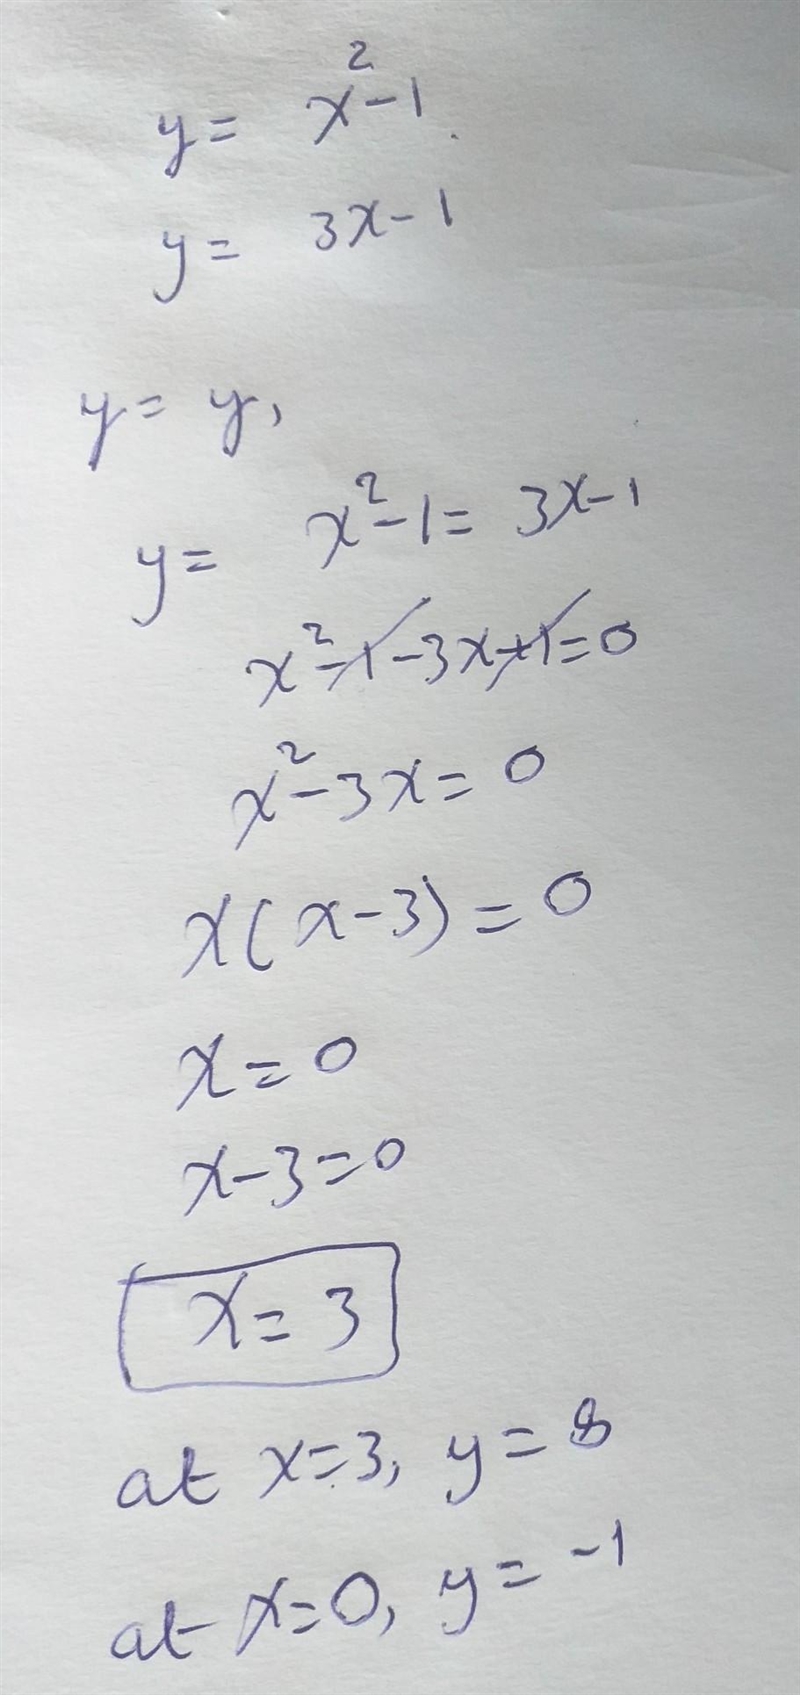 y = x² - 1.
y = 3x - 1
y = y,
y = x² - 1 = 3x - 1
x² - 1 - 3x + 1 = 0
x² - 3x = 0
x(x - 3) = 0
x = 0
x - 3 = 0
x = 3
at x = 3, y = 8
at x = 0, y = -1